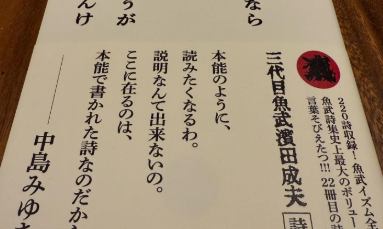 220詩収録！魚武イズム全
魚武詩集史上最大のボリュー
言葉そびえたつ!!! 22冊目の詩
三代目魚武濱田成夫
詩
本能のように、
読みたくなるわ。
説明なんて出来ないの。
ここに在るのは、
本能で書かれた詩なのだから
中島みゆき
なら
うが
んけ